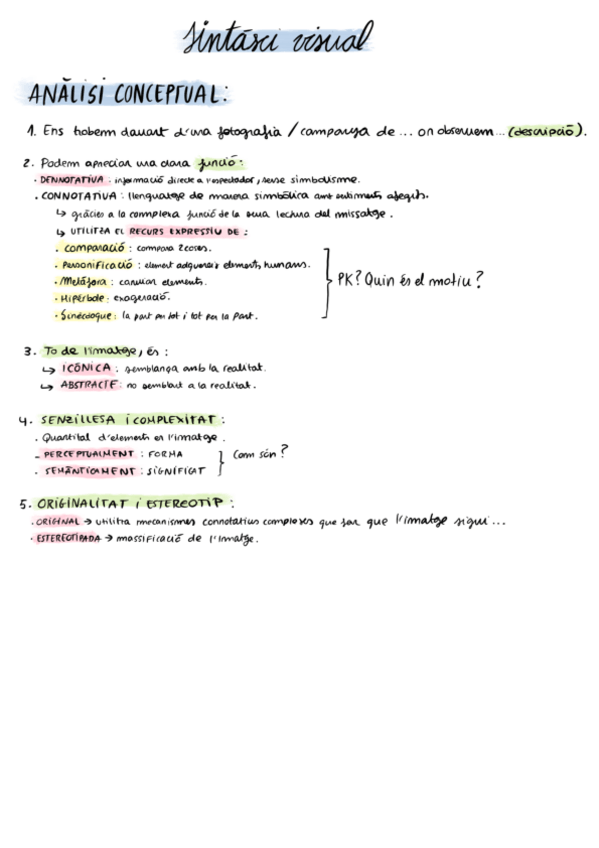 Sintàxi visual
ANÀLISI CONCEPTUAL:
1. Ens trobem davant d'una fotografia / campanya de ... on observem... (descripció).
2. Podem apreciar una clara funció:
· DENNOTATIVA: informació directe a l'espectador, sense simbolisme.
· CONNOTATIVA: llenguatge de manera simbòlica amb sentiments afegits.
↳ gràcies a la complexa funció de la seua lectura del missatge.
↳ UTILITZA EL RECURS EXPRESSIU DE:
· Comparació: compara 2 coses.
· Personificació: element adquereix elements humans.
· Metàfora: canviar elements.
· Hipérbole: exageració.
· Sinècdoque: la part per tot i tot per la part.
PK? Quin és el motiu?
3. To de l'imatge, és:
↳ ICÒNICA: semblança amb la realitat.
↳ ABSTRACTE: no semblant a la realitat.
4. SENZILLESA I COMPLEXITAT:
· Quantitat d'elements en l'imatge.
- PERCEPTUALMENT: FORMA
· SEMÀNTICAMENT: SIGNIFICAT
Com són?
5. ORIGINALITAT I ESTEREOTIP:
· ORIGINAL → utilitza mecanismes connotatius complexes que fan que l'imatge sigui...
· ESTEREOTIPADA → massificació de l'imatge.